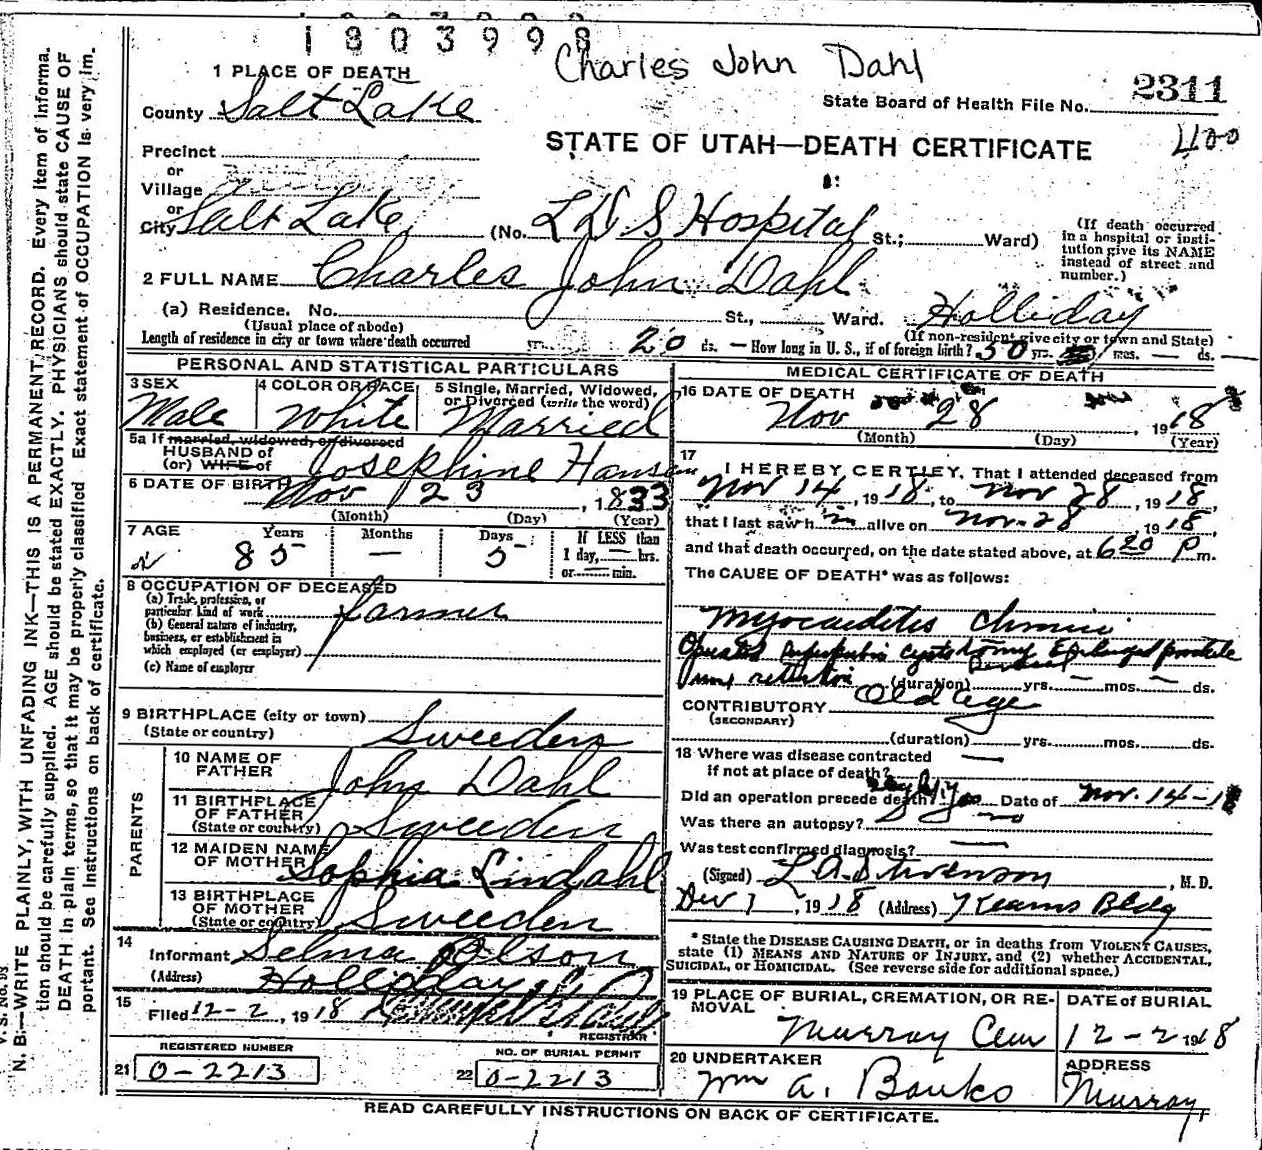 1803998
Charles John Dahl
1 PLACE OF DEATH
2311
State Board of Health File No.
County Salt Lake
STATE OF UTAH—DEATH CERTIFICATE
400
Precinct
or
Village
or
City Salt Lake (No. L D S Hospital St.; Ward)
(If death occurred in a hospital or insti-
tution give its NAME
instead of street and
number.)
2 FULL NAME Charles John Dahl
(a) Residence. No. St., Ward. Holliday
(Usual place of abode) (If non-resident give city or town and State)
Length of residence in city or town where death occurred yrs. 20 ds. — How long in U. S., if of foreign birth? 50 yrs. mos. — ds.
PERSONAL AND STATISTICAL PARTICULARS
3 SEX 4 COLOR OR RACE 5 Single, Married, Widowed,
or Divorced (write the word)
Male White Married
5a If married, widowed, or divorced
HUSBAND of
(or) WIFE of Josephine Hansen
6 DATE OF BIRTH Nov 23, 1833
(Month) (Day) (Year)
7 AGE Years Months Days If LESS than
1 day, — hrs.
or — min.
85 — 5
8 OCCUPATION OF DECEASED
(a) Trade, profession, or
particular kind of work farmer
(b) General nature of industry,
business, or establishment in
which employed (or employer)
(c) Name of employer
9 BIRTHPLACE (city or town)
(State or country) Sweeden
PARENTS
10 NAME OF
FATHER John Dahl
11 BIRTHPLACE
OF FATHER
(State or country) Sweeden
12 MAIDEN NAME
OF MOTHER Sophia Lindahl
13 BIRTHPLACE
OF MOTHER
(State or country) Sweeden
14
Informant Selma Olson
(Address) Holliday
15
Filed 12-2, 1918
REGISTRAR
REGISTERED NUMBER
21 0-2213
NO. OF BURIAL PERMIT
22 0-2213
MEDICAL CERTIFICATE OF DEATH
16 DATE OF DEATH
Nov 28, 1918
(Month) (Day) (Year)
17
I HEREBY CERTIFY, That I attended deceased from
Nov 14, 1918, to Nov 28, 1918,
that I last saw h im alive on Nov. 28, 1918,
and that death occurred, on the date stated above, at 6 20 P m.
The CAUSE OF DEATH* was as follows:
Myocarditis chronic
Operated suprapubic cystotomy Enlarged prostate
(duration) yrs. — mos. — ds.
CONTRIBUTORY Old age
(SECONDARY)
(duration) yrs. mos. ds.
18 Where was disease contracted
if not at place of death? —
Did an operation precede death? yes Date of Nov. 14-18
Was there an autopsy? no
Was test confirmed diagnosis? —
(Signed) L. A. Stevenson, M. D.
Dec 1, 1918 (Address) Kearns Bldg
* State the DISEASE CAUSING DEATH, or in deaths from VIOLENT CAUSES,
state (1) MEANS AND NATURE OF INJURY, and (2) whether ACCIDENTAL,
SUICIDAL, or HOMICIDAL. (See reverse side for additional space.)
19 PLACE OF BURIAL, CREMATION, OR RE-
MOVAL DATE of BURIAL
Murray Cem 12-2 1918
20 UNDERTAKER ADDRESS
Wm A. Banks Murray
READ CAREFULLY INSTRUCTIONS ON BACK OF CERTIFICATE.
V. S. No.
N. B.—WRITE PLAINLY, WITH UNFADING INK—THIS IS A PERMANENT RECORD. Every item of informa-
tion should be carefully supplied. AGE should be stated EXACTLY. PHYSICIANS should state CAUSE OF
DEATH in plain terms, so that it may be properly classified. Exact statement of OCCUPATION is very im-
portant. See Instructions on back of certificate.